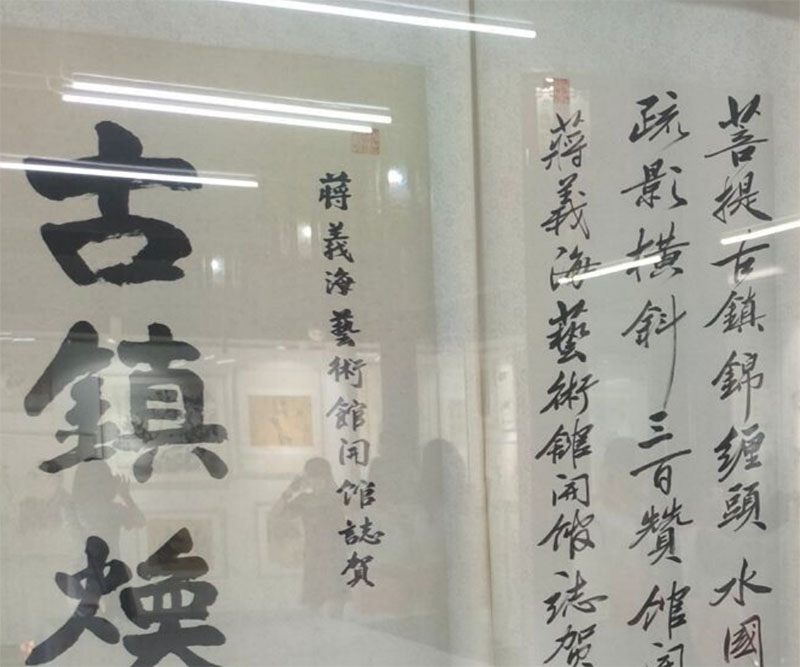 菩提古鎮錦纏頭水國
疏影橫斜三百贊館
蔣義海藝術館開館誌賀
蔣義海藝術館開館誌賀
古鎮煥